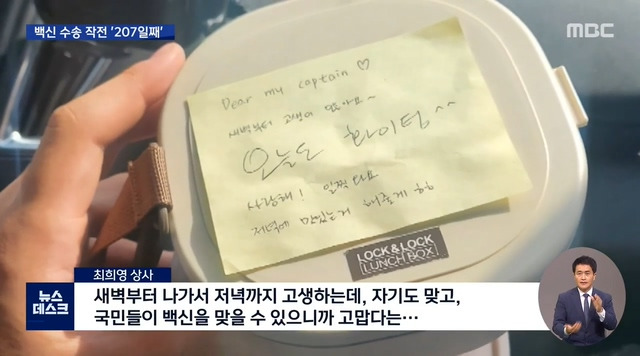 백신 수송 작전 '207일째'
MBC
Dear my captain ♡
새벽부터 고생이 많아요~
오늘도 화이팅 ^^
사랑해! 일찍 와요
저녁에 맛있는거 해줄게 ㅎㅎ
LOCK&LOCK
LUNCH BOX
최희영 상사
뉴스
데스크
새벽부터 나가서 저녁까지 고생하는데, 자기도 맞고,
국민들이 백신을 맞을 수 있으니까 고맙다는…